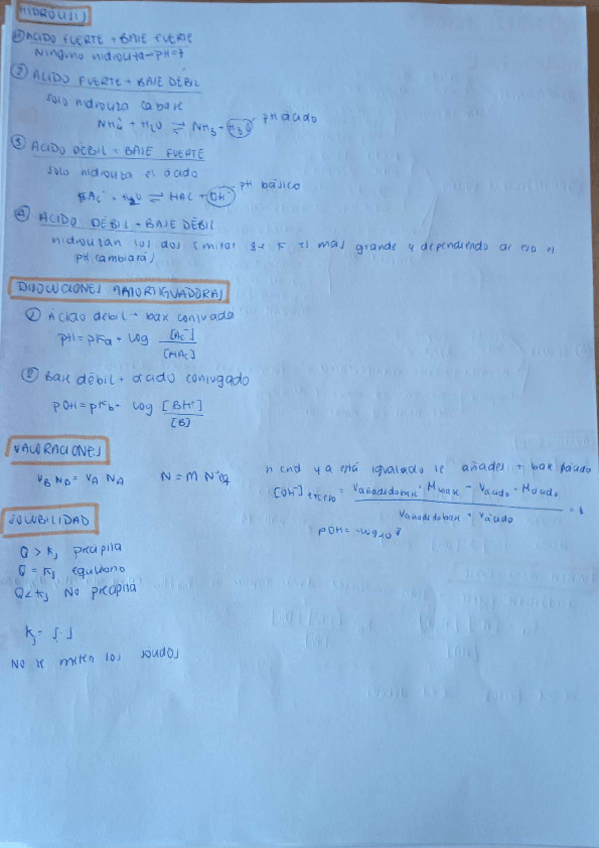 HIDRÓLISIS
① ÁCIDO FUERTE + BASE FUERTE
Ninguno hidroliza → pH=7
② ÁCIDO FUERTE + BASE DÉBIL
Solo hidroliza la base
NH₄⁺ + H₂O ⇌ NH₃ + H₃O⁺ pH ácido
③ ÁCIDO DÉBIL + BASE FUERTE
Solo hidroliza el ácido
Ac⁻ + H₂O ⇌ HAc + OH⁻ pH básico
④ ÁCIDO DÉBIL + BASE DÉBIL
hidrolizan los dos (mirar que K es más grande y dependiendo de eso el
pH cambiará)
DISOLUCIONES AMORTIGUADORAS
① Ácido débil + base conjugada
pH = pKa + log [Ac⁻]/[HAc]
② Base débil + ácido conjugado
pOH = pKb + log [BH⁺]/[B]
VALORACIONES
V_B N_B = V_A N_A N = M · Nº eq
cnd ya está igualado se añades + base
[OH⁻] exceso = (V añadido base · M base − V ácido · M ácido)/(V añadido base + V ácido) =
pOH = −log
SOLUBILIDAD
Q > Ks precipita
Q = Ks equilibrio
Q < Ks No precipita
Ks = [ ]
No se meten los sólidos